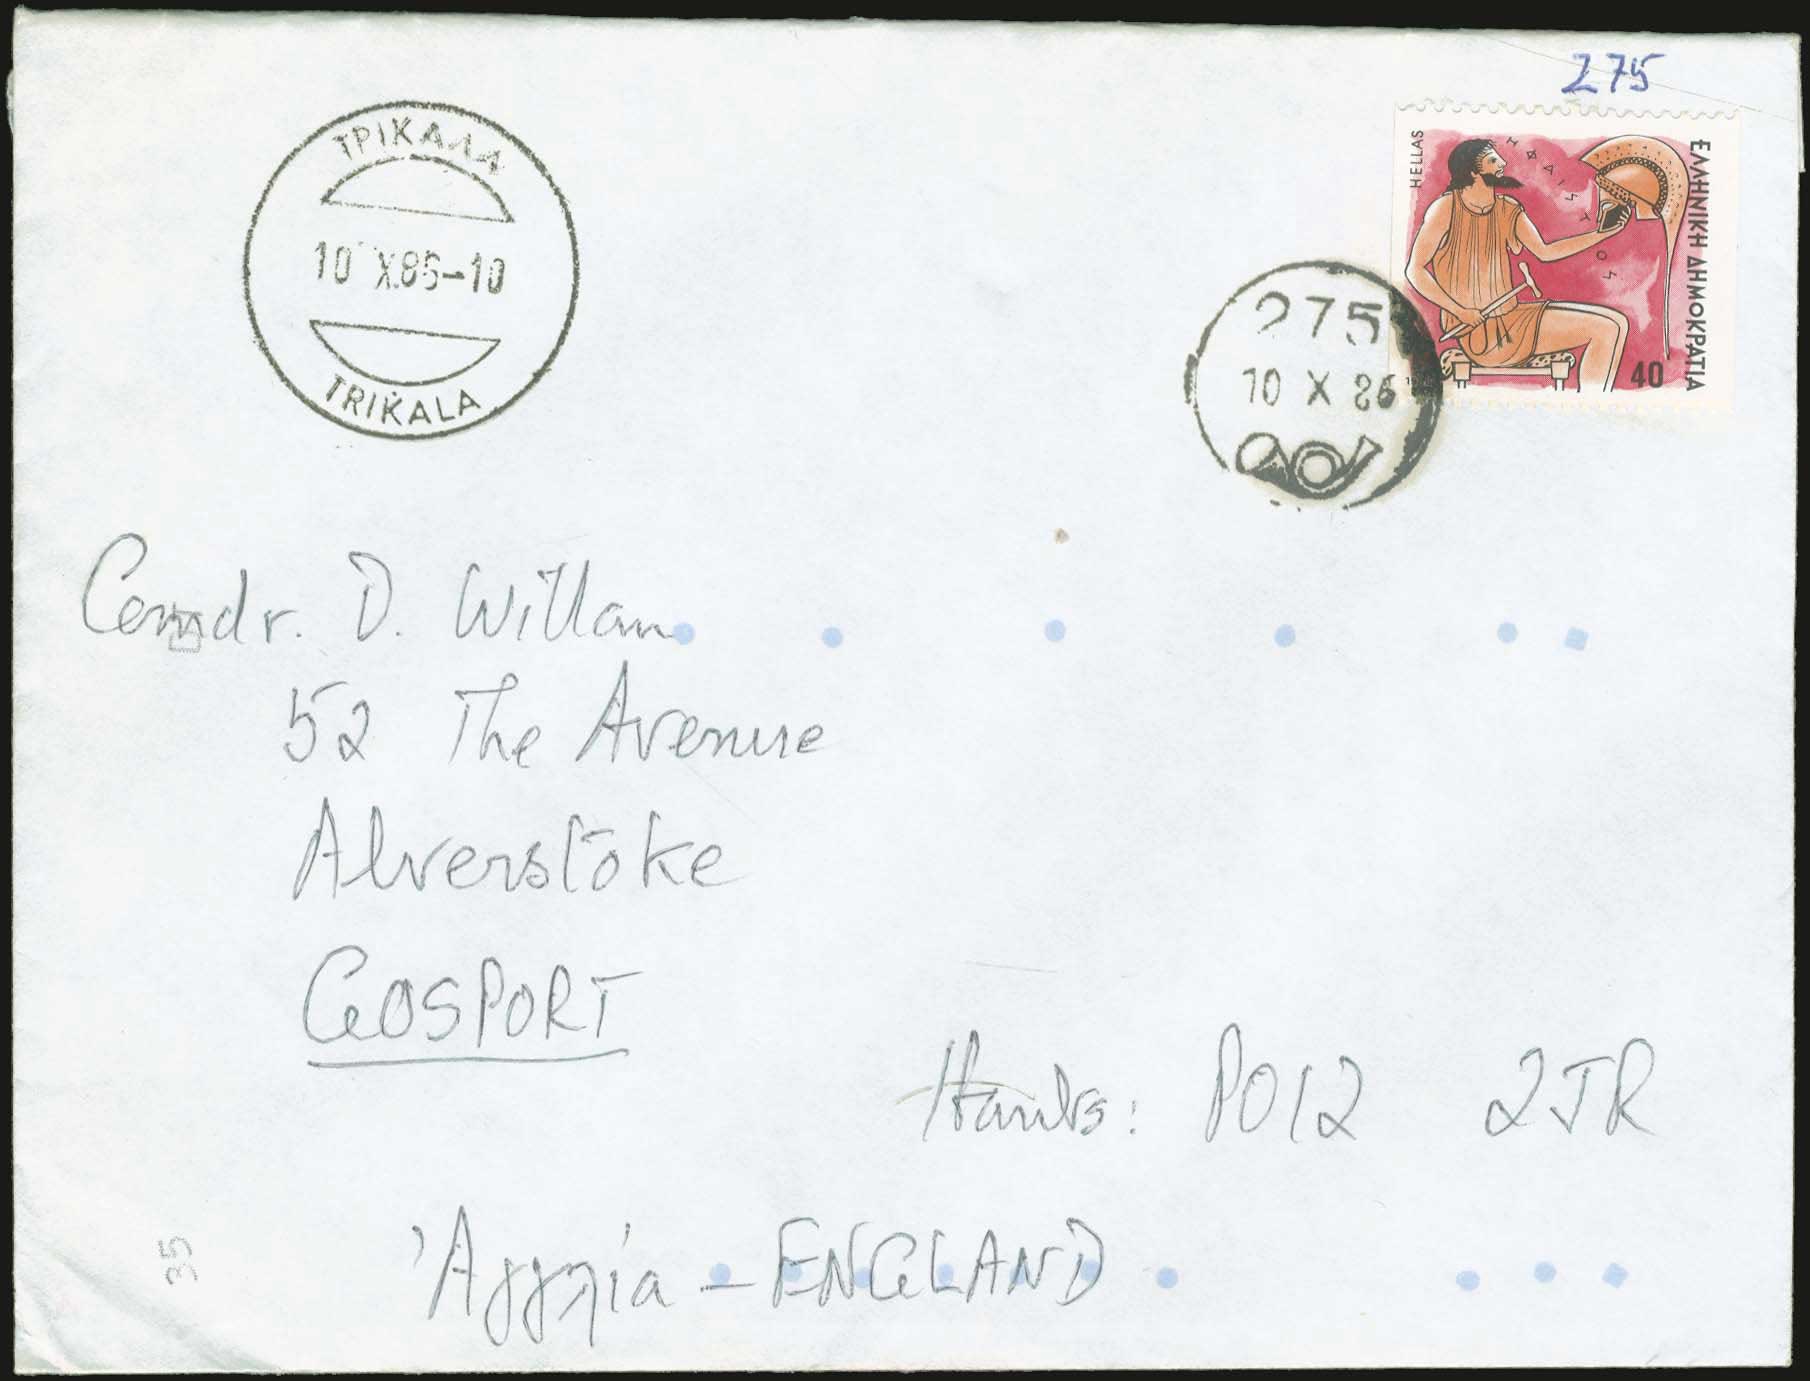 275
HELLAS
ΗΦΑΙΣΤΟΣ
ΕΛΛΗΝΙΚΗ ΔΗΜΟΚΡΑΤΙΑ
40
ΤΡΙΚΑΛΑ
10 X.86-10
TRIKALA
275
10 X 86
Comdr. D. Willan
52 The Avenue
Alverstoke
GOSPORT
Hants: PO12 2JR
'Αγγλία - ENGLAND
35